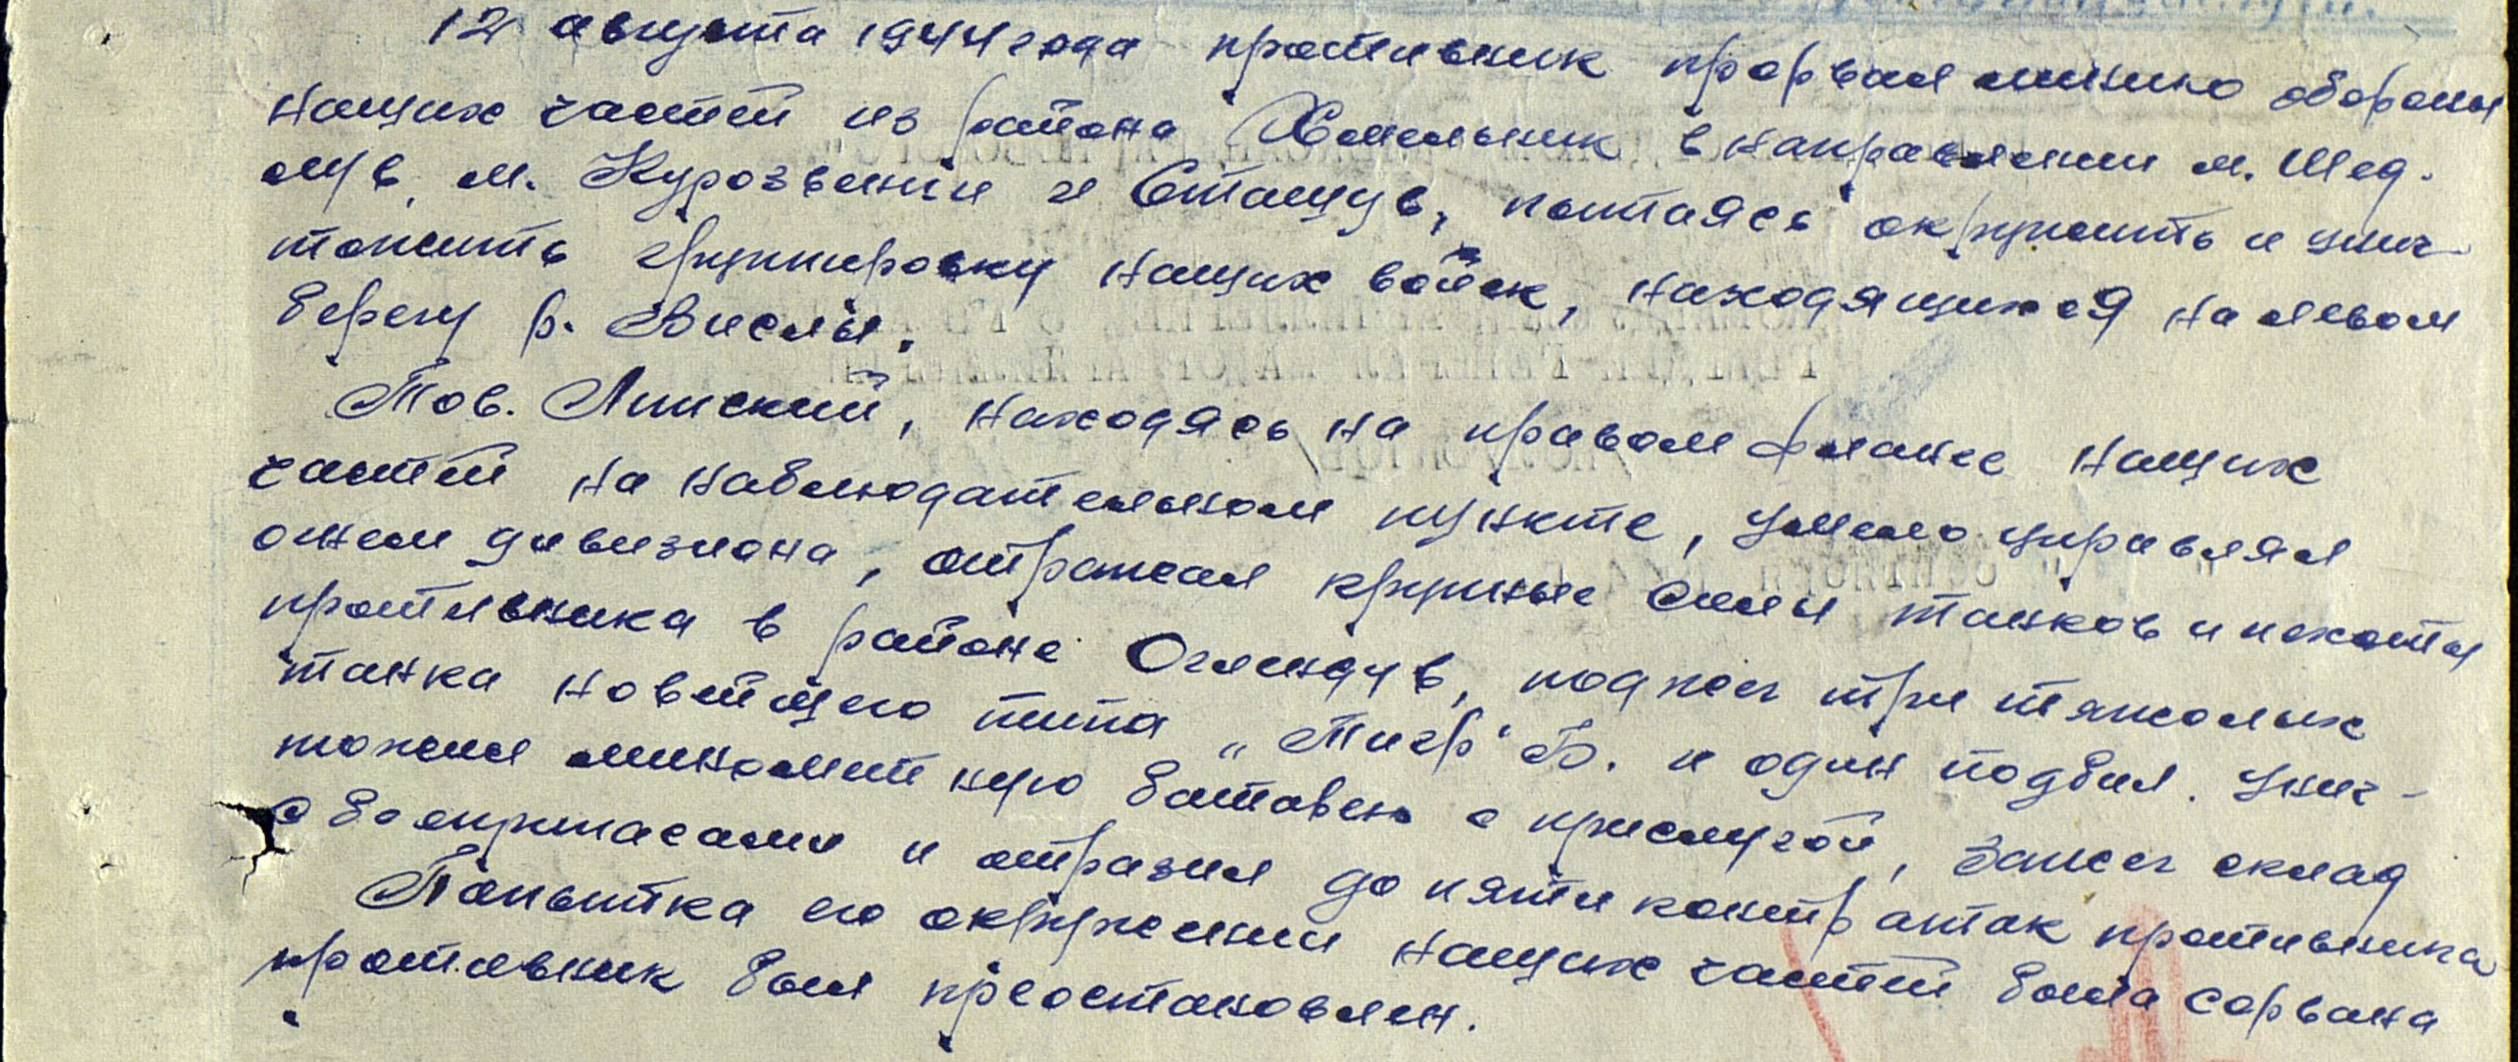 12 августа 1944 года противник прорвал линию обороны
наших частей из района Хмельник в направлении м. Шед-
лув, м. Курозвенки и Сташув, пытаясь окружить и унич-
тожить группировку наших войск, находящихся на левом
берегу р. Висла.
Тов. Липский, находясь на правом фланге наших
частей на наблюдательном пункте, умело управлял
огнем дивизиона, отражая крупные силы танков и пехоты
противника в районе Оглендув, поджег три тяжелых
танка новейшего типа „Тигр" Б. и один подбил. Унич-
тожил минометную батарею с прислугой, зажег склад
с боеприпасами и отразил до пяти контратак противника
Попытка его окружении наших частей была сорвана
противник был приостановлен.